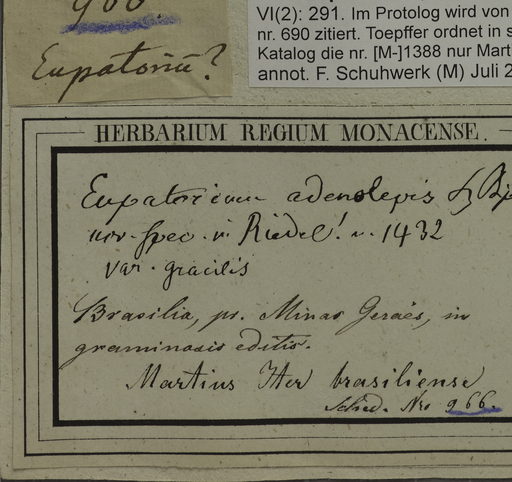 966.
Eupatoriū?
VI(2): 291. Im Protolog wird von
nr. 690 zitiert. Toepffer ordnet in s
Katalog die nr. [M-]1388 nur Mart
annot. F. Schuhwerk (M) Juli 2
HERBARIUM REGIUM MONACENSE.
Eupatorium adenolepis Sz Bip
nov. spec. in Riedel! n. 1432
var. gracilis
Brasilia, pr. Minas Geraës, in
graminosis editis.
Martius Iter brasiliense
Sched. Nro 966.